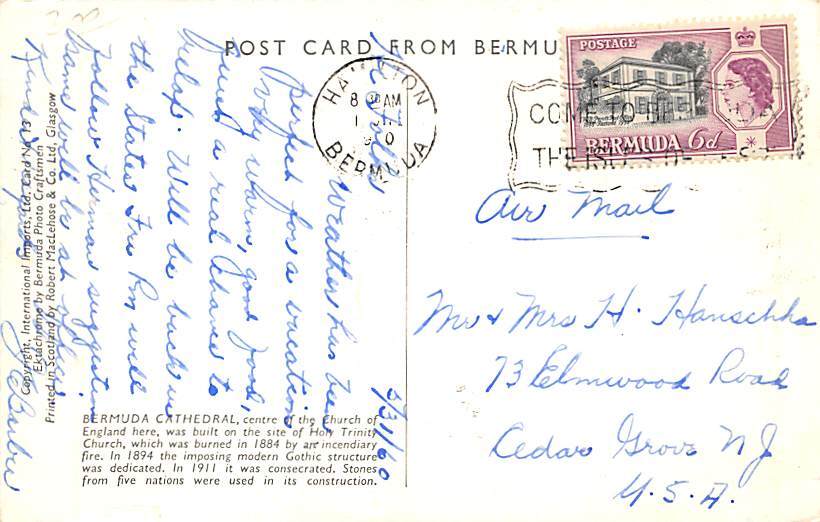 POST CARD FROM BERMU
HAMILTON
8 30 AM
BERMUDA
COME TO BERMUDA
THE ISLES OF REST
POSTAGE
BERMUDA 6d
Air Mail
Mr & Mrs H. Hanschka
73 Elmwood Road
Cedar Grove NJ
U.S.A.
3/31/60
Weather has been
perfect for a vacation
Very warm, good food,
find a real chance to
relax. Will be back in
the States Fri Pm will
follow Herman suggestion
same will be at office
Kindest
BERMUDA CATHEDRAL, centre of the Church of
England here, was built on the site of Holy Trinity
Church, which was burned in 1884 by an incendiary
fire. In 1894 the imposing modern Gothic structure
was dedicated. In 1911 it was consecrated. Stones
from five nations were used in its construction.
Copyright, International Imports, Ltd. Card No. 13
Ektachrome by Bermuda Photo Craftsmen
Printed in Scotland by Robert MacLehose & Co. Ltd, Glasgow